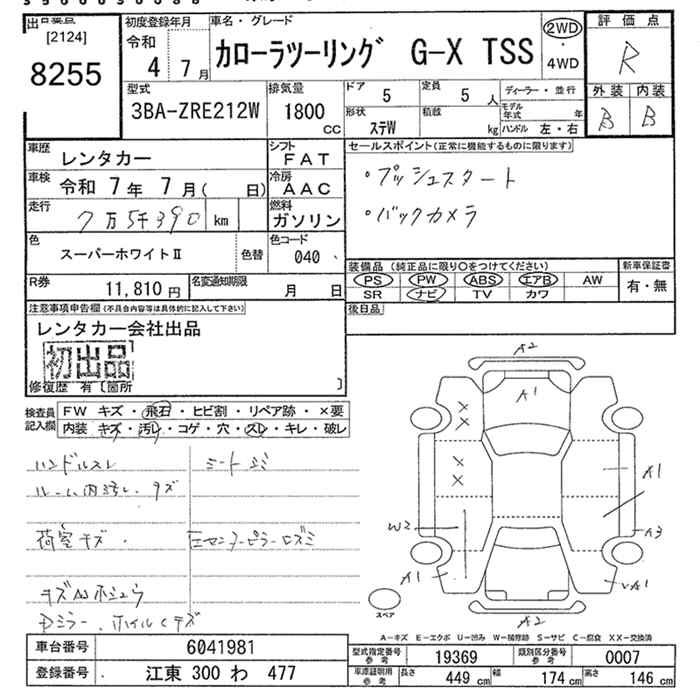 出品番号
[2124]
8255
初度登録年月
令和
4 7月
車名・グレード
カローラツーリング G-X TSS
2WD
・
4WD
評価点
R
型式
3BA-ZRE212W
排気量
1800
cc
ドア
5
定員
5 人
ディーラー・並行
形状
ステW
積載
kg
モデル年式
年
ハンドル 左・右
外装 内装
B B
車歴
レンタカー
シフト
FAT
セールスポイント(正常に機能するものに限ります)
・プッシュスタート
・バックカメラ
車検
令和 7年 7月( 日)
冷房
AAC
走行
7万5千390 km
燃料
ガソリン
色
スーパーホワイトⅡ
色替
色コード
040
装備品 (純正品に限り○をつけてください)
新車保証書
PS PW ABS エアB AW
SR ナビ TV カワ
有・無
R券
11,810円
名変通知期限
月 日
後日品
注意事項申告欄(不具合内容等は具体的に記入して下さい)
レンタカー会社出品
初出品
修復歴 有〔箇所 〕
検査員
記入欄
FW キズ・飛石・ヒビ割・リペア跡・×要
内装 キズ・汚レ・コゲ・穴・スレ・キレ・破レ
ハンドルスレ
シートシミ
ルーム内汚レ・キズ
荷室キズ.
キズ
ミラー. ホイルキズ
A2
A1
×
×
×
×
A1
W2
A3
A1
A1
A2
スペア
A-キズ E-エクボ U-凹み W-補修跡 S-サビ C-腐食 XX-交換済
車台番号
6041981
型式指定番号
参考
19369
類別区分番号
参考
0007
登録番号
江東 300 わ 477
車庫証明用
参考
長さ 449 cm
幅 174 cm
高さ 146 cm